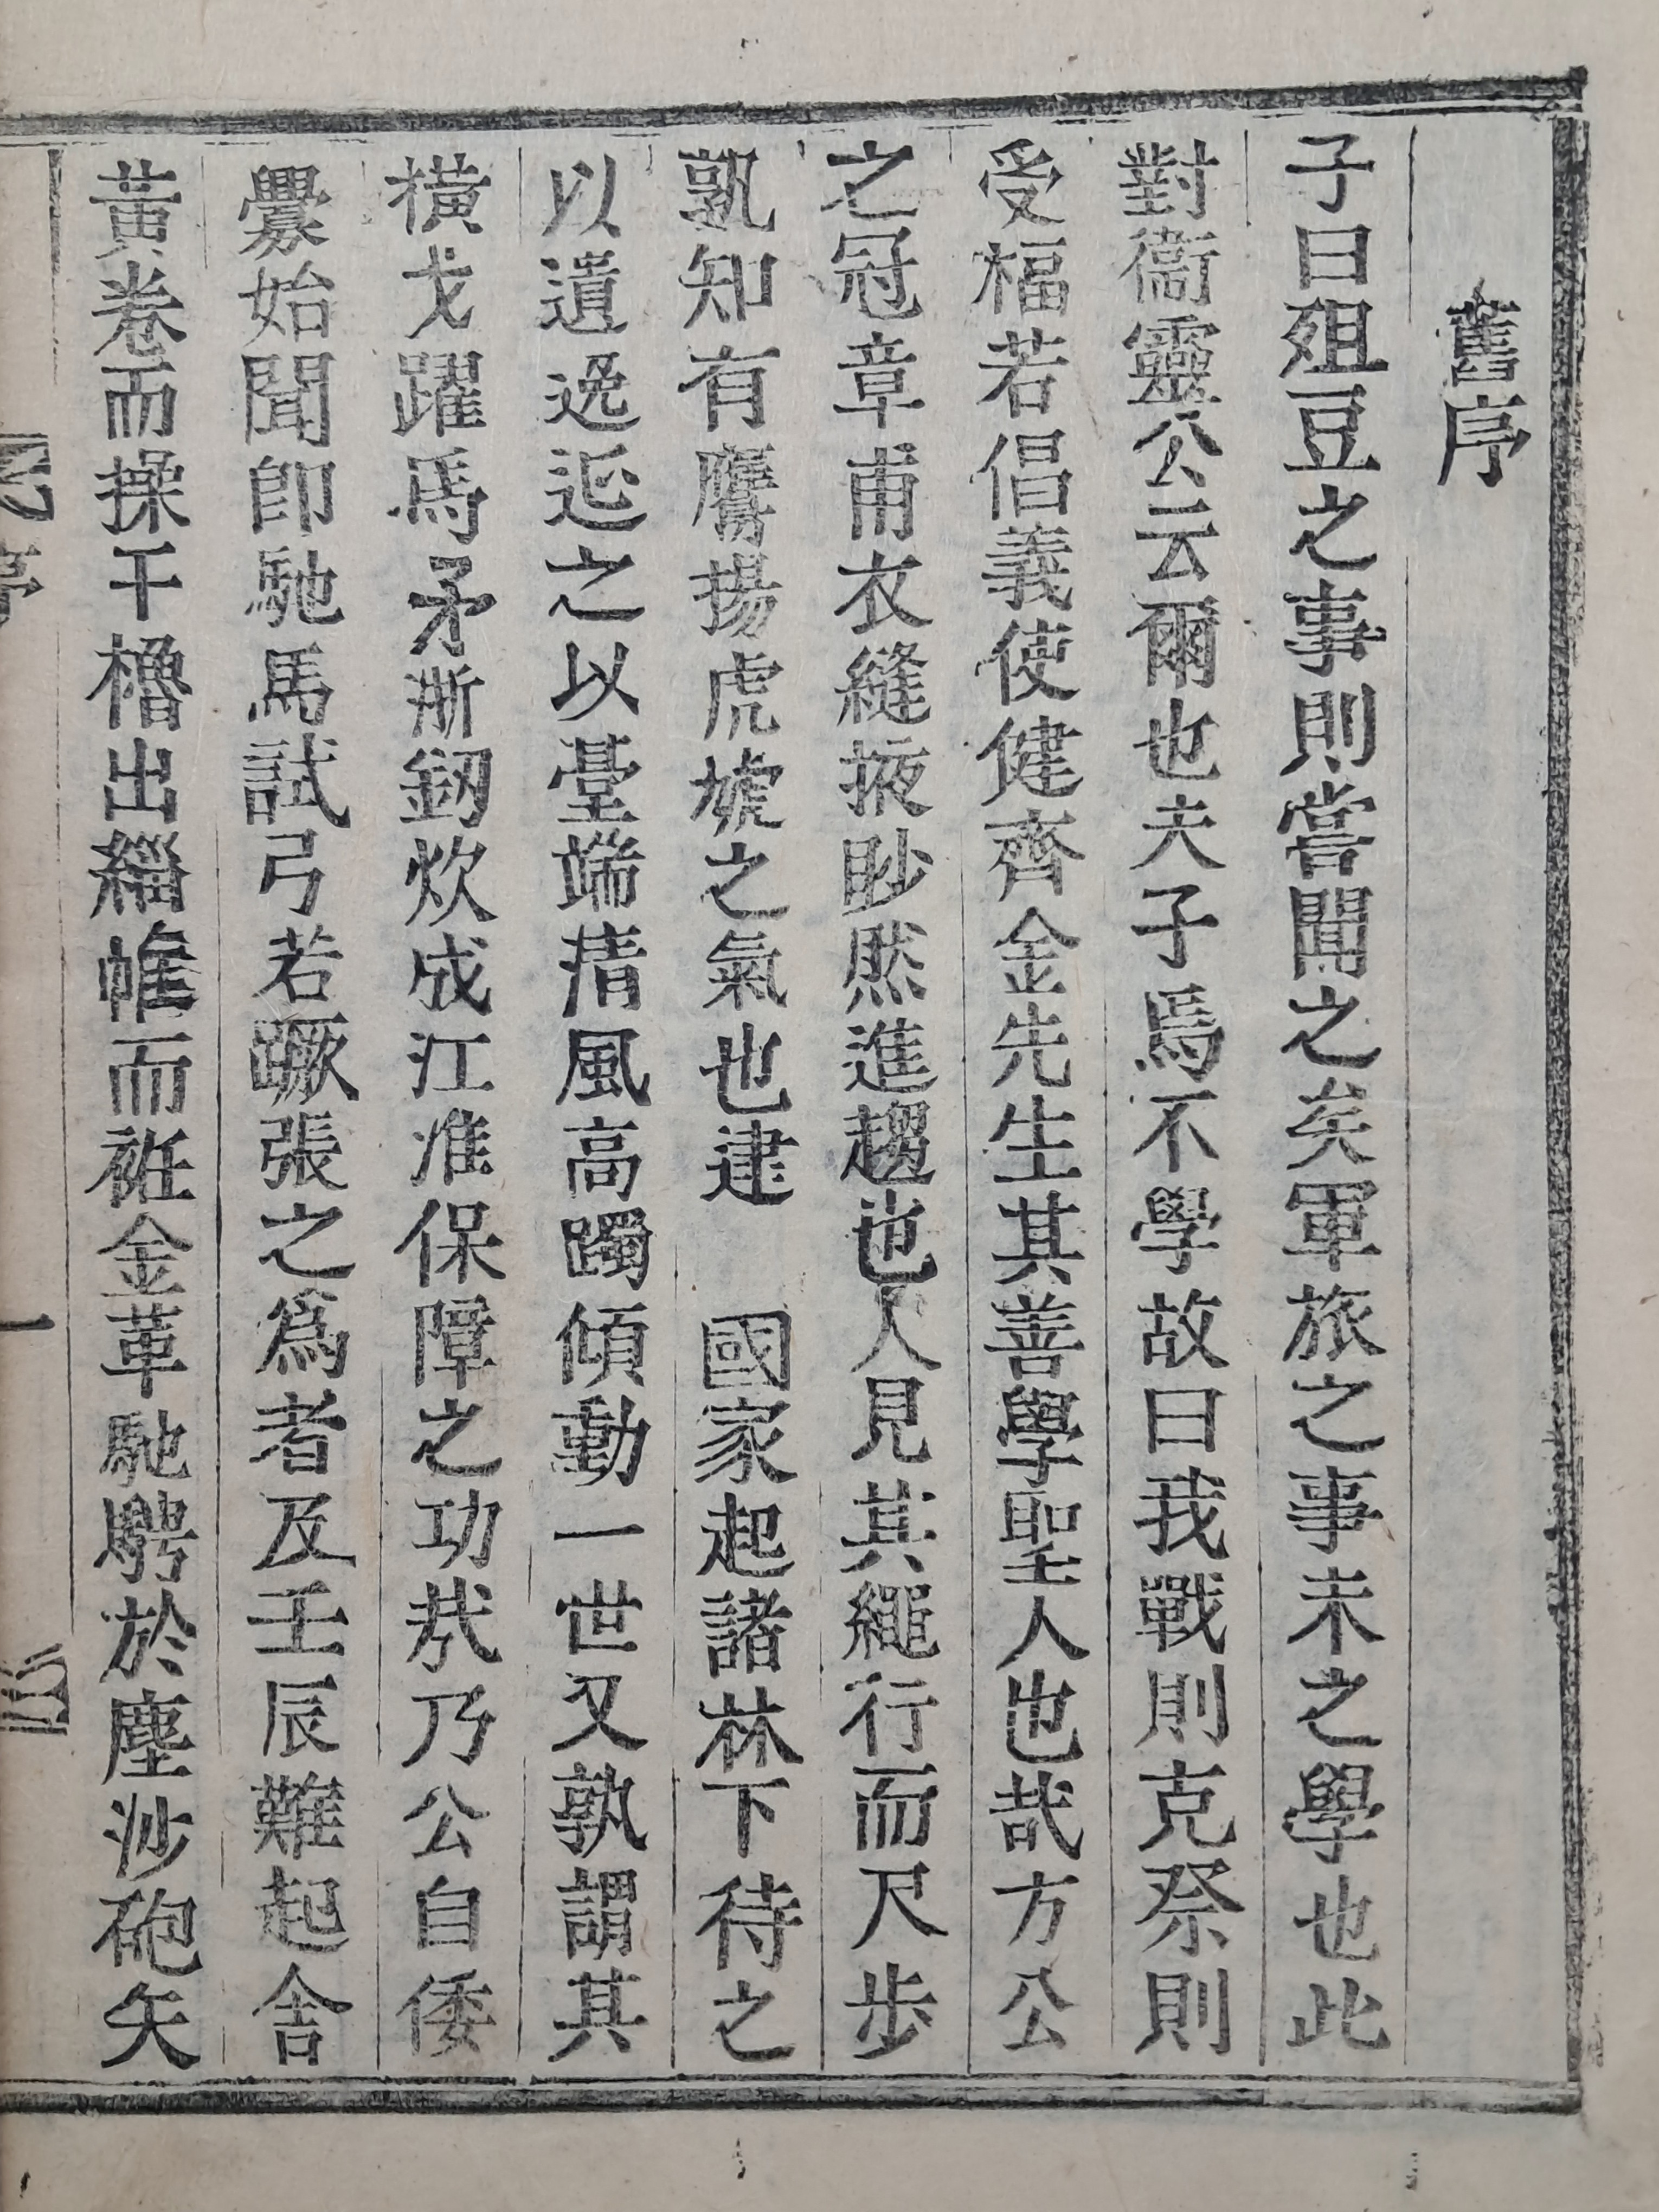 舊序
子曰俎豆之事則嘗聞之矣軍旅之事未之學也此
對衛靈公云爾也夫子焉不學故曰我戰則克祭則
受福若倡義使健齊金先生其善學聖人也哉方公
之冠章甫衣縫掖眇然進趨也人見其繩行而尺步
孰知有鷹揚虎虓之氣也逮 國家起諸林下待之
以遺逸延之以臺端淸風高躅傾動一世又孰謂其
橫戈躍馬矛淅釰炊成江淮保障之功哉乃公自倭
釁始聞卽馳馬試弓若蹶張之爲者及壬辰難起舍
黃卷而操干櫓出緇帷而袵金革馳騁於塵沙砲矢
一